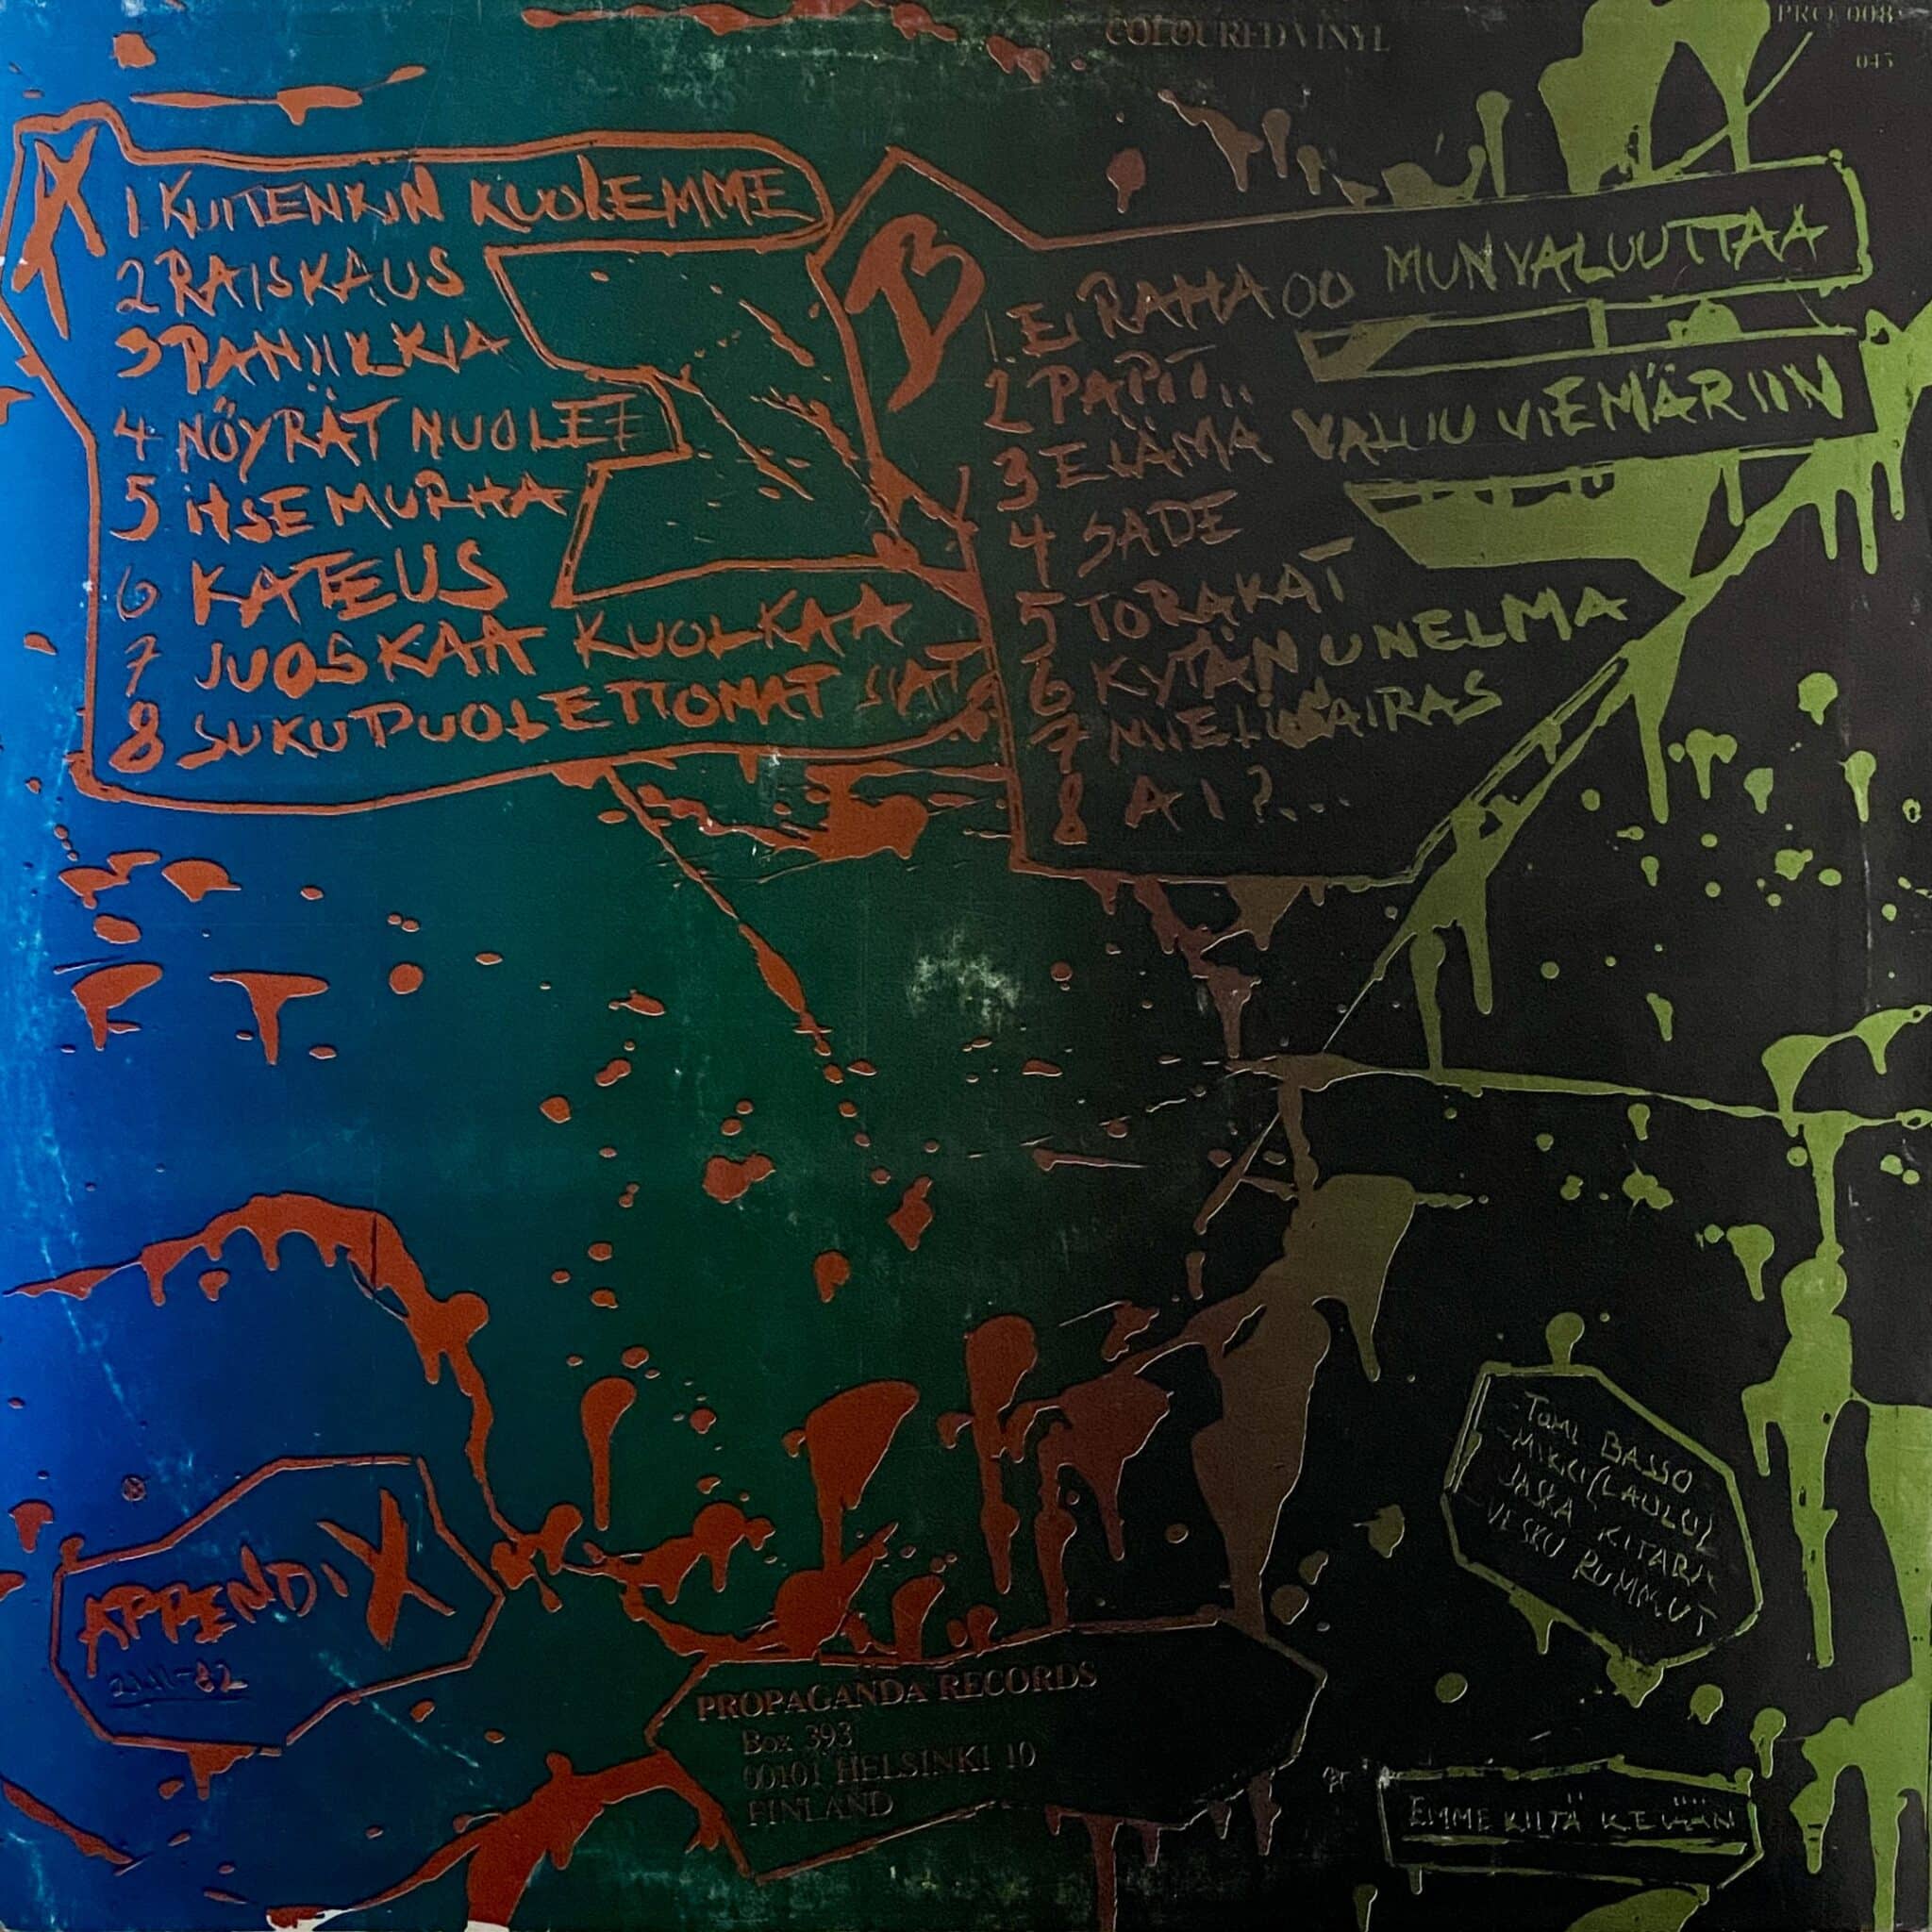 COLOURED VINYL
PRO 008
045
A
1 KUITENKIN KUOLEMME
2 RAISKAUS
3 PANIIKKIA
4 NÖYRÄT NUOLEE
5 ITSEMURHA
6 KATEUS
7 JUOSKAA KUOLKAA
8 SUKUPUOLETTOMAT SIAT
B
1. EI RAHA OO MUN VALUUTTAA
2 PAPIT..
3 ELÄMÄ VALUU VIEMÄRIIN
4 SADE
5 TORAKAT
6 KYTÄN UNELMA
7 MIELISAIRAS
8 AI?...
APPENDIX
-82
PROPAGANDA RECORDS
Box 393
00101 HELSINKI 10
FINLAND
-TOMI BASSO
-MIKKI (LAULU)
JASKA KITARA
-VESKU RUMMUT
EMME KIITÄ KETÄÄN